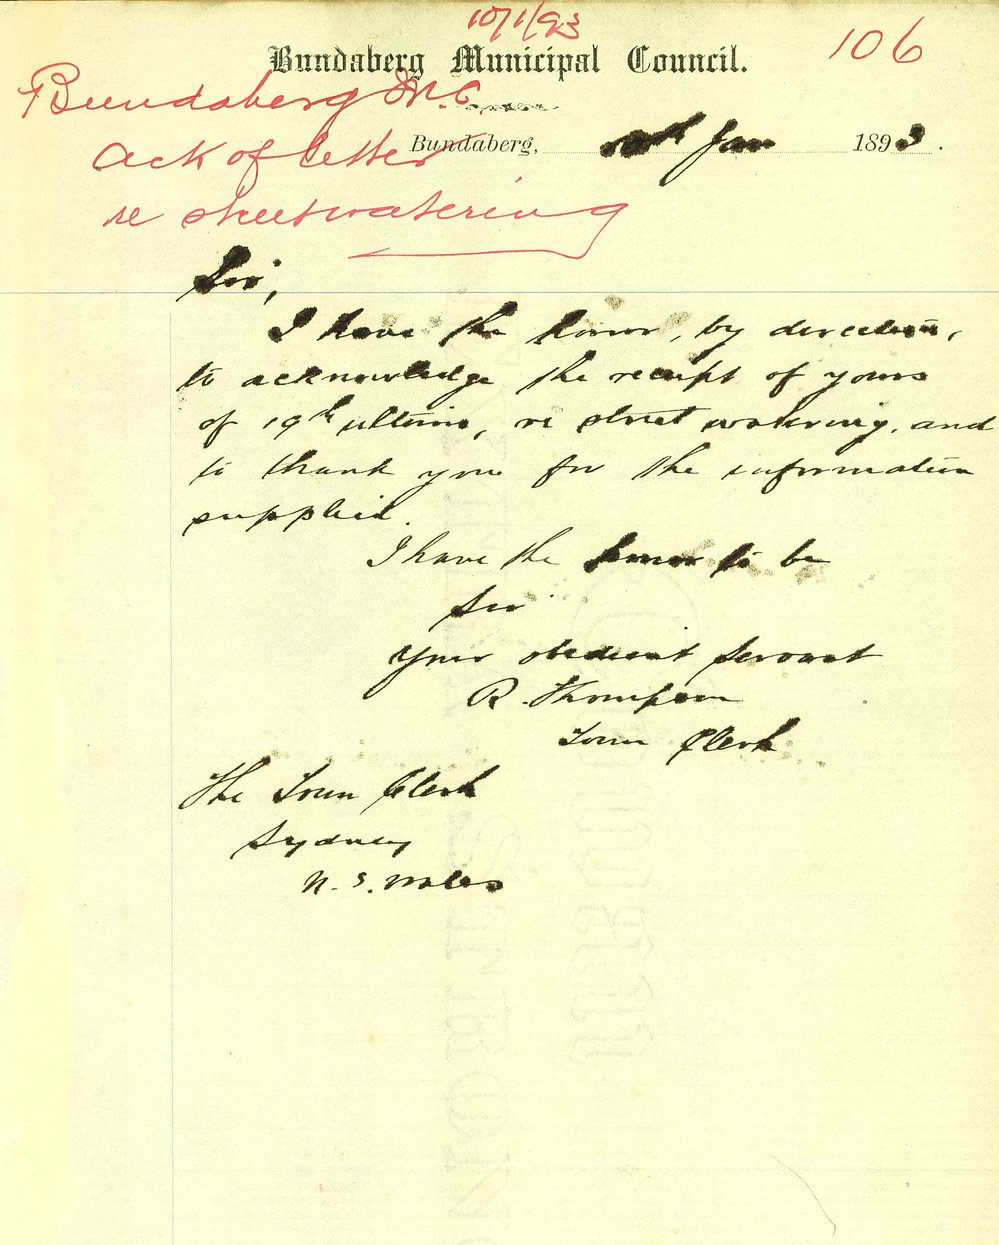 10/1/93
106
Bundaberg Municipal Council.
Bundaberg M.C.
Ack of letter
re streetwatering
Bundaberg, 10th Jan 1893.
Sir,
I have the honor, by direction,
to acknowledge the receipt of yours
of 19th ultimo, re street watering, and
to thank you for the information
supplied.
I have the honor to be
Sir
Your obedient Servant
R. Thompson
Town Clerk
The Town Clerk
Sydney
N. S. Wales